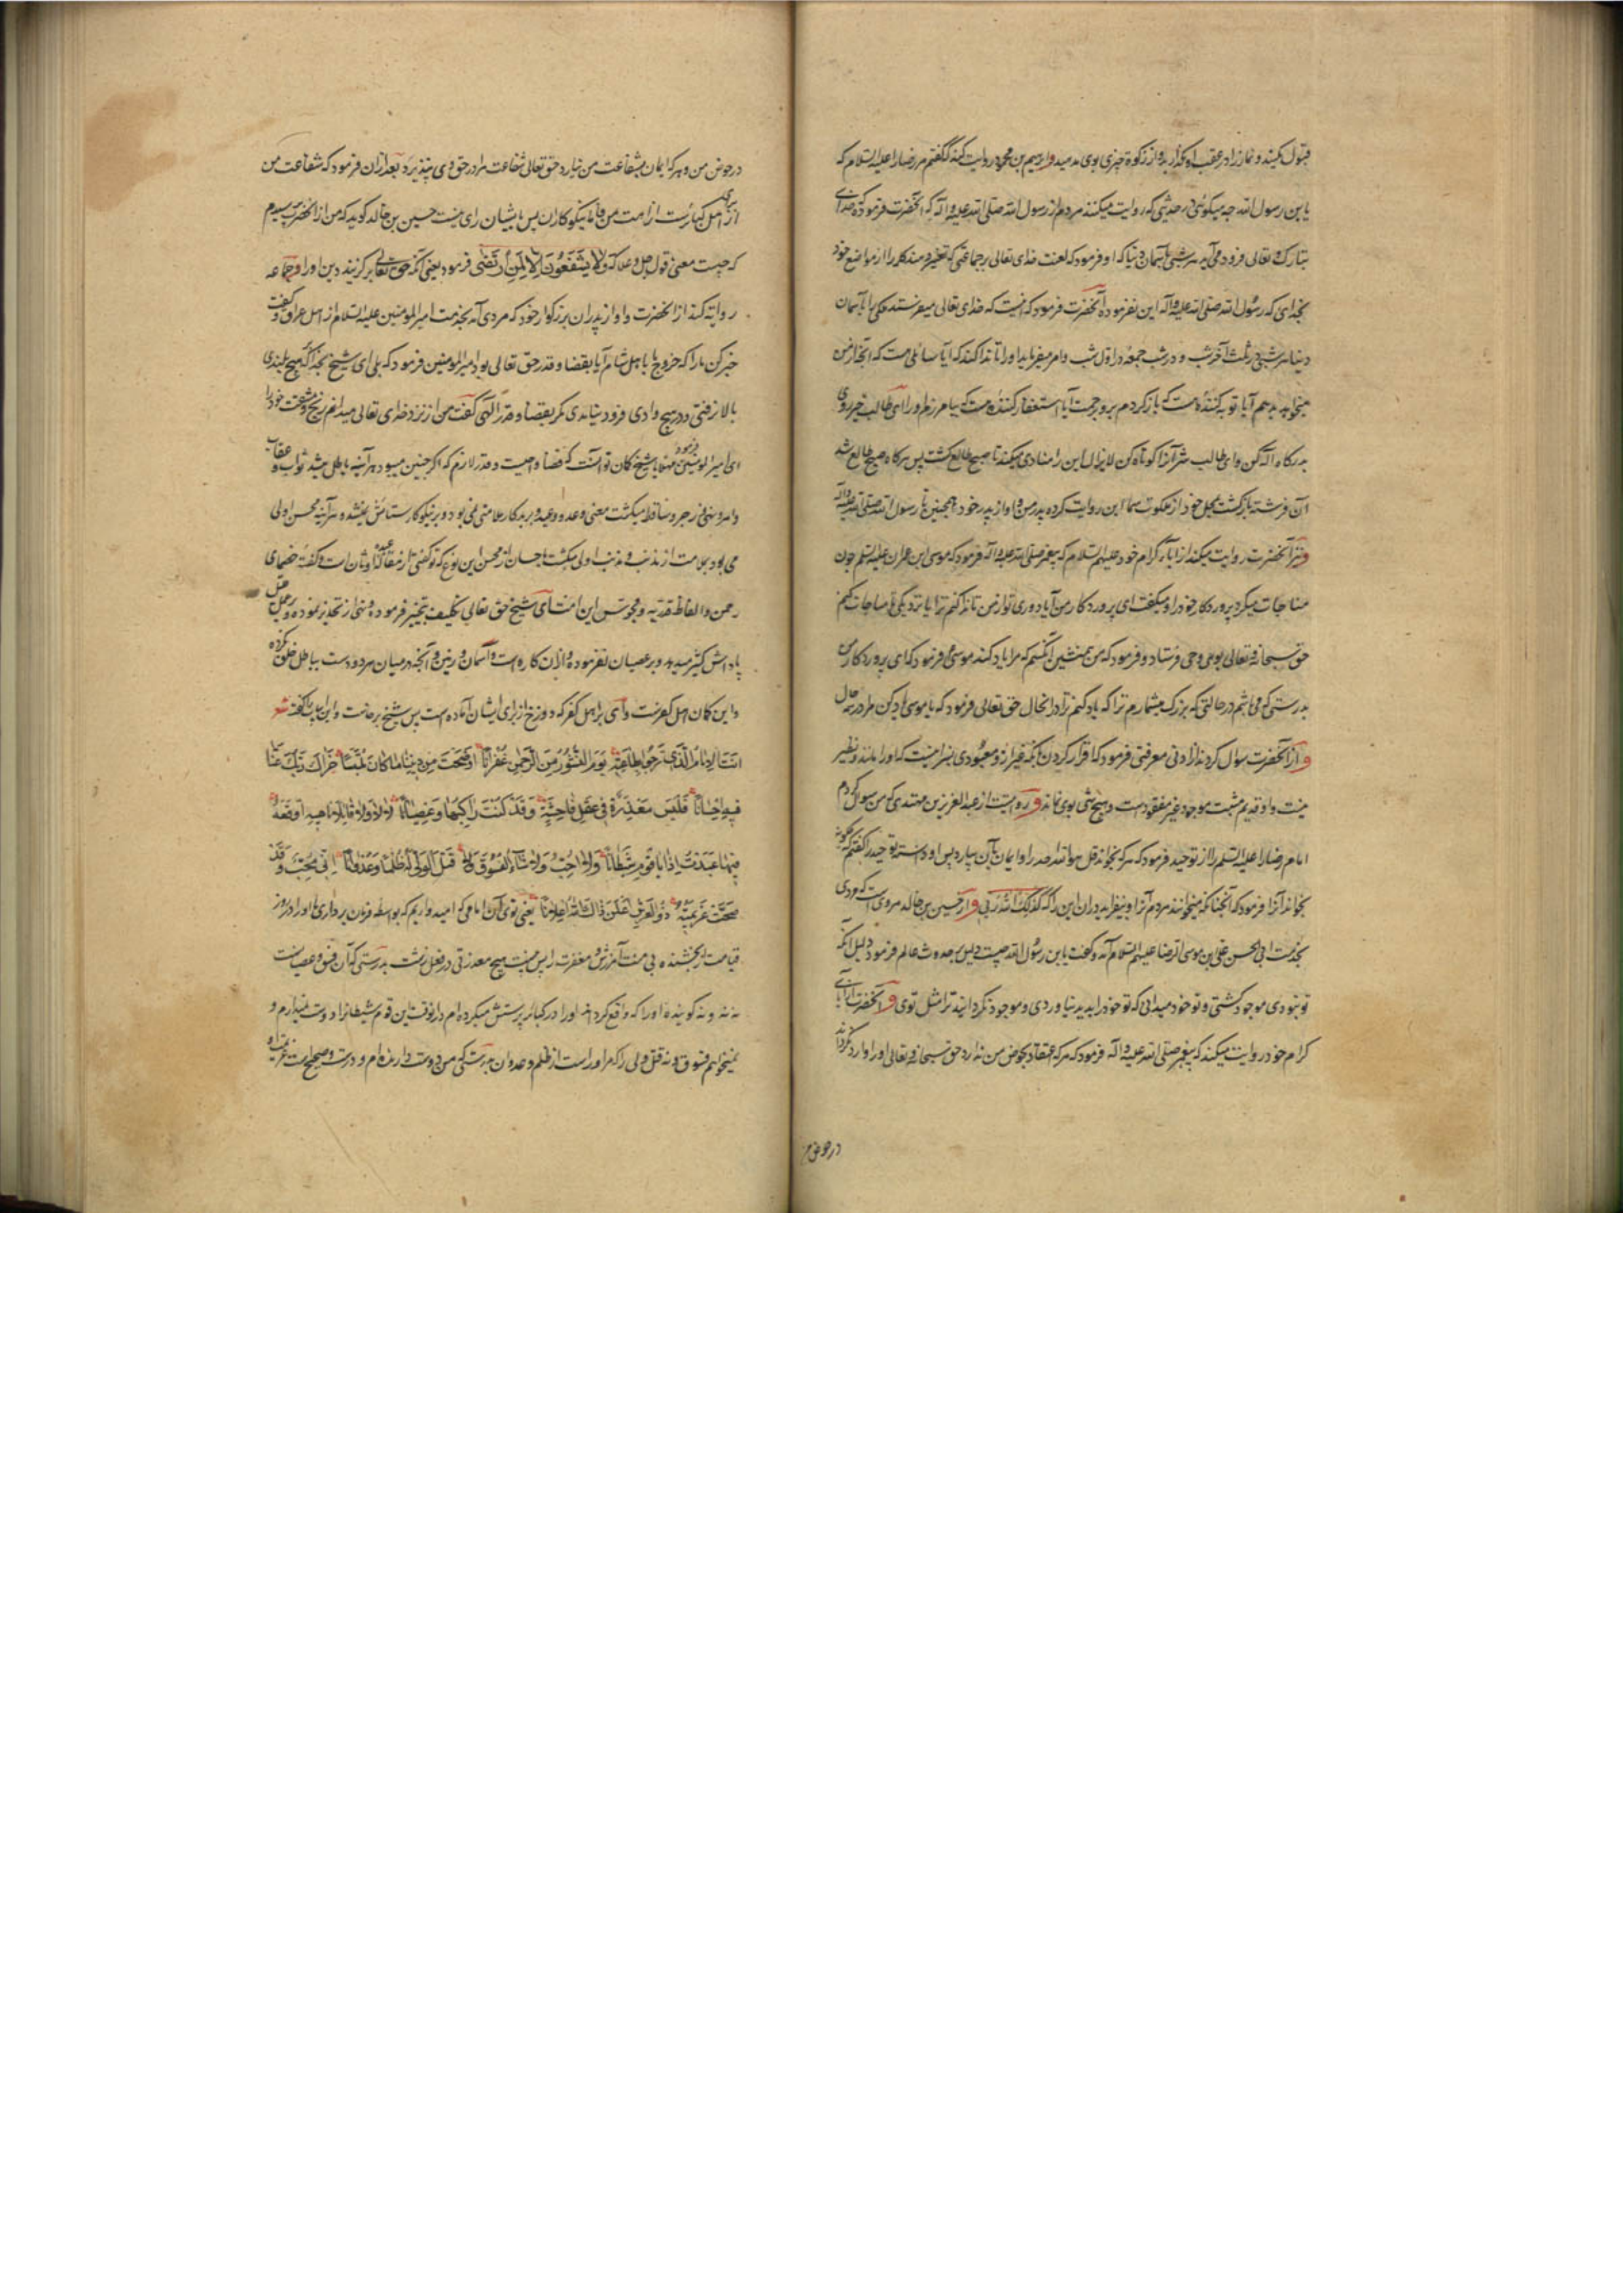 قبول مکنید و نماز را در عقب او مگذارید و از زکوة چیزی بوی مدهید و ابراهیم بن محمود روایت کند که گفتم مر رضا را علیه السلام که
یا بن رسول الله چه میکوئی در حدیثی که روایت میکنند مردم از رسول الله صلی الله علیه و اله که آنحضرت فرموده که خدای
تبارک و تعالی فرود می آید هر شبی بآسمان دنیا که او فرمود که لعنت خدای تعالی بر جماعتی که تغییر دهند کلم را از مواضع خود
بخدای که رسول الله صلی الله علیه و اله این نفرموده آنحضرت فرمود که اینست که خدای تعالی میفرستد ملکی را بآسمان
دنیا هر شبی در ثلث آخر شب و در شب جمعه در اول شب و امر میفرماید او را تا ندا کند که آیا سائلی هست که آنچه از من
میخواهد بدهم آیا توبه کننده هست که باز کردم برو برحمت آیا استغفار کننده هست که بیامرزم او را ای طالب خیر روی
بدرکاه اله کن و ای طالب شر آنرا کوتاه کن لایزال این را منادی میکند تا صبح طالع کشت پس هرکاه صبح طالع شد
آن فرشته باز کشت بمحل خود از ملکوت سما این روایت کرده پدر من و او از پدر خود و همچنین تا رسول الله صلی الله علیه واله
و نیز آنحضرت روایت میکند از اباء کرام خود علیهم السلام که پیغمبر صلی الله علیه و اله فرمود که موسی ابن عمران علیه السلم چون
مناجات میکرد پروردکار خود را و میکفت ای پروردکار من آیا دوری تو از من تا ندا کنم ترا یا نزدیکی تا مناجات کنم
حق سبحانه و تعالی بوی وحی فرستاد و فرمود که من همنشین آنکسم که مرا یاد کند موسی فرمود که ای پروردکار من
بدرستی که می باشم در حالتی که بزرک میشمارم ترا که یاد کنم ترا در انحال حق تعالی فرمود که یا موسی یاد کن مرا در همه حال
و از آنحضرت سوال کردند از ادنی معرفتی فرمود که اقرار کردن بانکه غیر از و معبودی بسزا نیست که او را مانند و نظیر
نیست و او قدیم مثبت موجود غیر مفقودست و هیچ شی بوی نماند و روایتست از عبد العزیز بن مهتدی که من سوال کردم
امام رضا را علیه السلم از توحید فرمود که هر که بخواند قل هو الله احد را و ایمان بآن بیارد پس او دانسته توحید را گفتم که چکونه
بخواند آنرا فرمود که آنچنانکه میخوانند مردم آنرا و بیفزاید در ان این را که کذلک الله ربی و از حسین بن خالد مرویست که مردی
بخدمت ابی الحسن علی بن موسی الرضا علیهم السلام آمد و کفت یا بن رسول الله چیست دلیل بر حدوث عالم فرمود دلیل آنکه
تو نبودی موجود کشتی و تو خود میدانی که تو خود را پدید نیاوردی و موجود نکردانیده ترا مثل توی و آنحضرت از آبای
کرام خود روایت میکند که پیغمبر صلی الله علیه و اله فرمود که هر که اعتقاد بحوض من ندارد حق سبحانه و تعالی او را وارد نکرداند
در حوض من
در حوض من و هر که ایمان بشفاعت من نیارد حق تعالی شفاعت مرا در حق وی نپذیرد بعد ازان فرمود که شفاعت من
از برای اهل کبائرست از امت من فاما نیکوکاران پس بایشان راهی نیست حسین بن خالد کوید که من از آنحضرت پرسیدم
که چیست معنی قول جل و علا که ولا یشفعون الا لمن ارتضی فرمود یعنی آنکه حق تعالی برکزیند دین او را و جماعه
روایت کنند از آنحضرت و او از پدران بزرکوار خود که مردی آمد بخدمت امیر المومنین علیه السلام از اهل عراق و کفت
خبر کن ما را که خروج ما باهل شام آیا بقضا و قدر حق تعالی بود امیر المومنین فرمود که بلی ای شیخ بخدا که هیچ بلندی
بالا نرفتی و در هیچ وادی فرود نیامدی مکر بقضا و قدر الهی کفت من از نزد خدای تعالی میدانم رنج و مشقت خود را
ای امیر المومنین فرمود مهلا یا شیخ کمان تو آنست که قضا واجبیست و قدر لازم که اکر چنین میبود هر آینه باطل میشد ثواب و عقاب
و امر و نهی و زجر و ساقط میکشت معنی وعد و وعید و بر بدکار ملامتی نمی بود و بر نیکوکار ستایش نمیشد و هر آینه محسن اولی
می بود بملامت از مذنب و مذنب اولی میکشت باحسان از محسن این نوع که تو کفتی از مقاله عبده اوثان است و کفته خصمای
رحمن و الفاظ قدریه و مجوس این امت ای شیخ حق تعالی تکلیف بتخییر فرموده و نهی از تحذیر نموده و بر عمل قلیل
پاداش کثیر میدهد و بر عصیان نفرموده و ازان کاره است و آسمان و زمین و آنچه در میان هر دوست بباطل خلق نکرده
و این کمان اهل کفرست و وای بر اهل کفر که دوزخ از برای ایشان آماده است پس شیخ برخاست و این ابیات را گفت شعر
انت الامام الذی نرجوا بطاعته یوم النشور من الرحمن غفرانا اوضحت من دیننا ما کان ملتبسا جزاک ربک عنا
فیه احسانا فلیس معذرة فی فعل فاحشة و قد کنت راکبها وعصیانا لا لا ولا قائلا ناهیه اوقعه
فیها عبدت اذا یا قوم شیطانا ولا احب ولا شاء الفسوق ولا قتل الولی له ظلما وعدوانا انی یحب وقد
صحت عزیمته ذو العرش اعلن ذاک الله اعلانا یعنی توی آن امامی که امیدواریم که بواسطه فرمان برداری ما او را در روز
قیامت از بخشنده بی منت آمرزش و مغفرت را پس نیست هیچ معذرتی در فعل زشت بدرستی که آن فسق و عصیانست
نه نه و نه کوینده او را که واقع کرداند او را در کبائر پرستش میکرده ام درانوقت این قوم شیطانرا و دوست نمیدارم و
نمیخواهم فسوق و نه قتل ولی را که مر او راست از ظلم و عدوان بدرستی که من دوست دارنده ام و درست و صحیح است عزیمت او